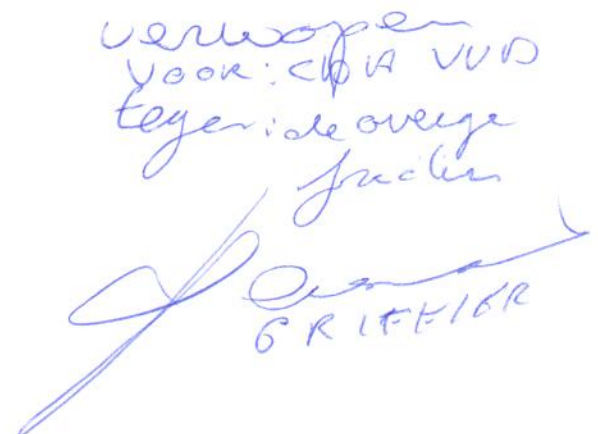 verworpen
VOOR: CDA VVD
tegen: de overige
fracties
GRIFFIER